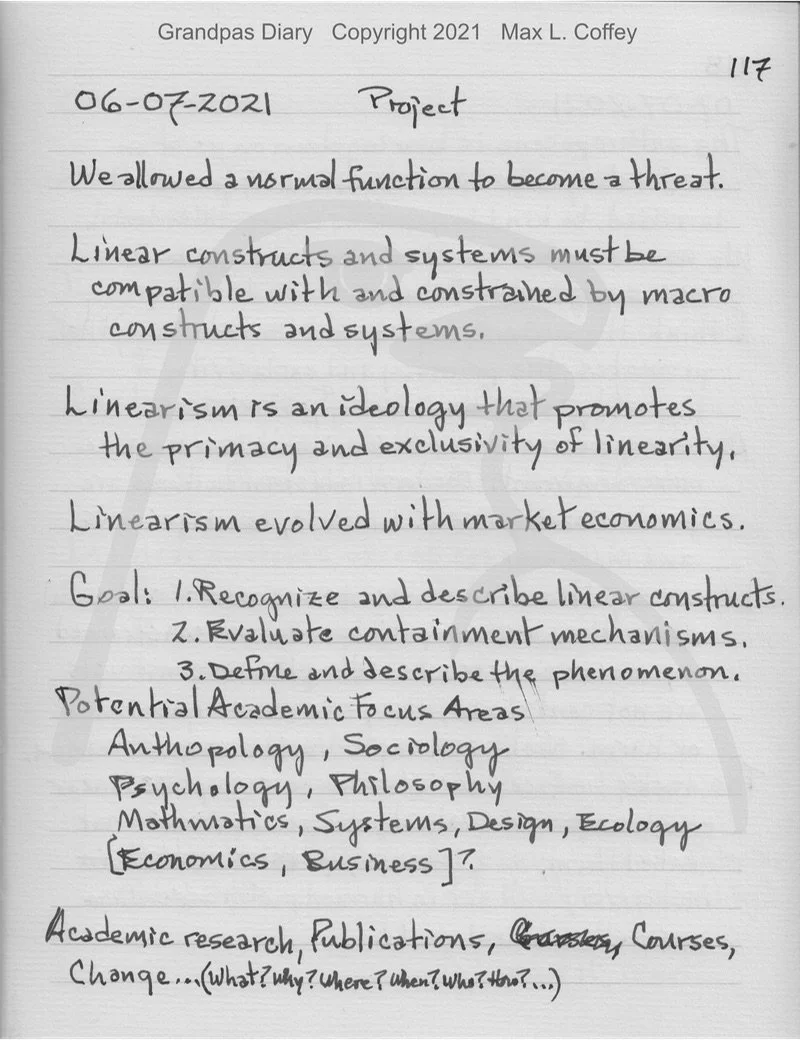 Grandpas Diary Copyright 2021 Max L. Coffey
117
06-07-2021 Project
We allowed a normal function to become a threat.
Linear constructs and systems must be
compatible with and constrained by macro
constructs and systems.
Linearism is an ideology that promotes
the primacy and exclusivity of linearity.
Linearism evolved with market economics.
Goal: 1. Recognize and describe linear constructs.
2. Evaluate containment mechanisms.
3. Define and describe the phenomenon.
Potential Academic Focus Areas
Anthopology, Sociology
Psychology, Philosophy
Mathmatics, Systems, Design, Ecology
[Economics, Business]?
Academic research, Publications, Courses,
Change...(What? Why? Where? When? Who? How?...)